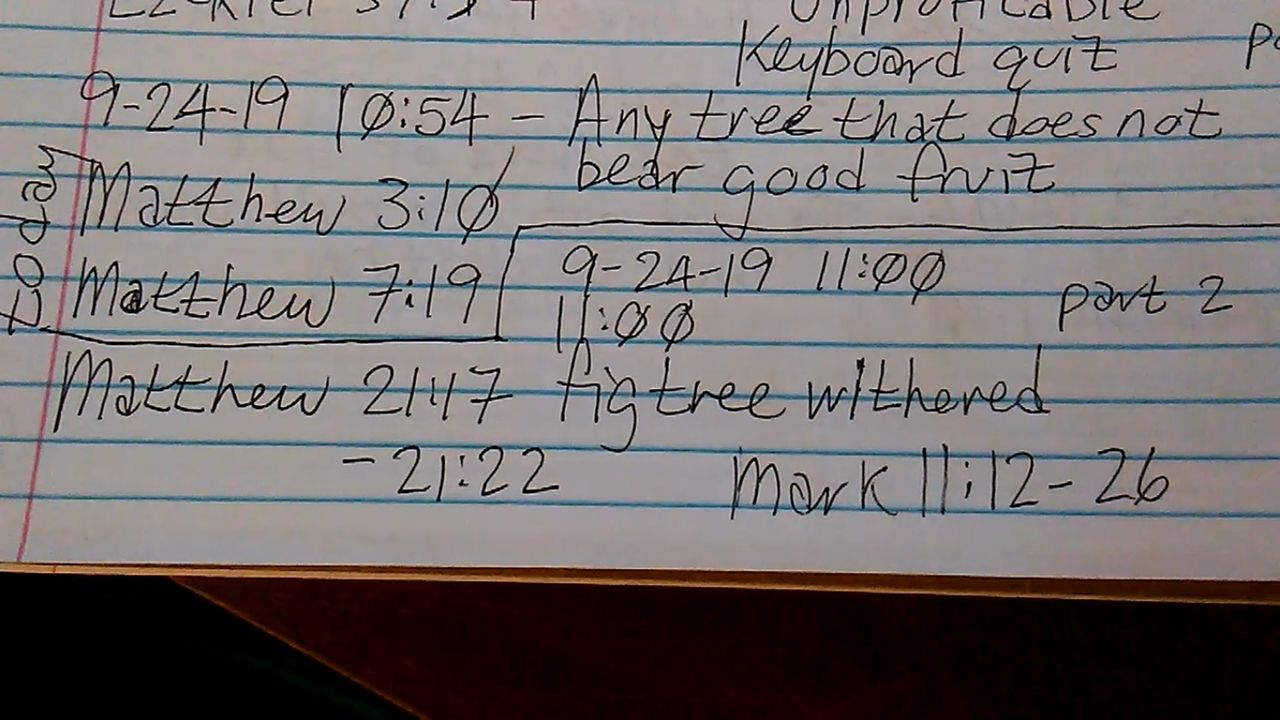 Unprofitable
Keyboard quit
9-24-19 10:54 - Any tree that does not
bear good fruit
Matthew 3:10
Matthew 7:19
9-24-19 11:00
11:00
part 2
Matthew 21:17 fig tree withered
-21:22
Mark 11:12-26